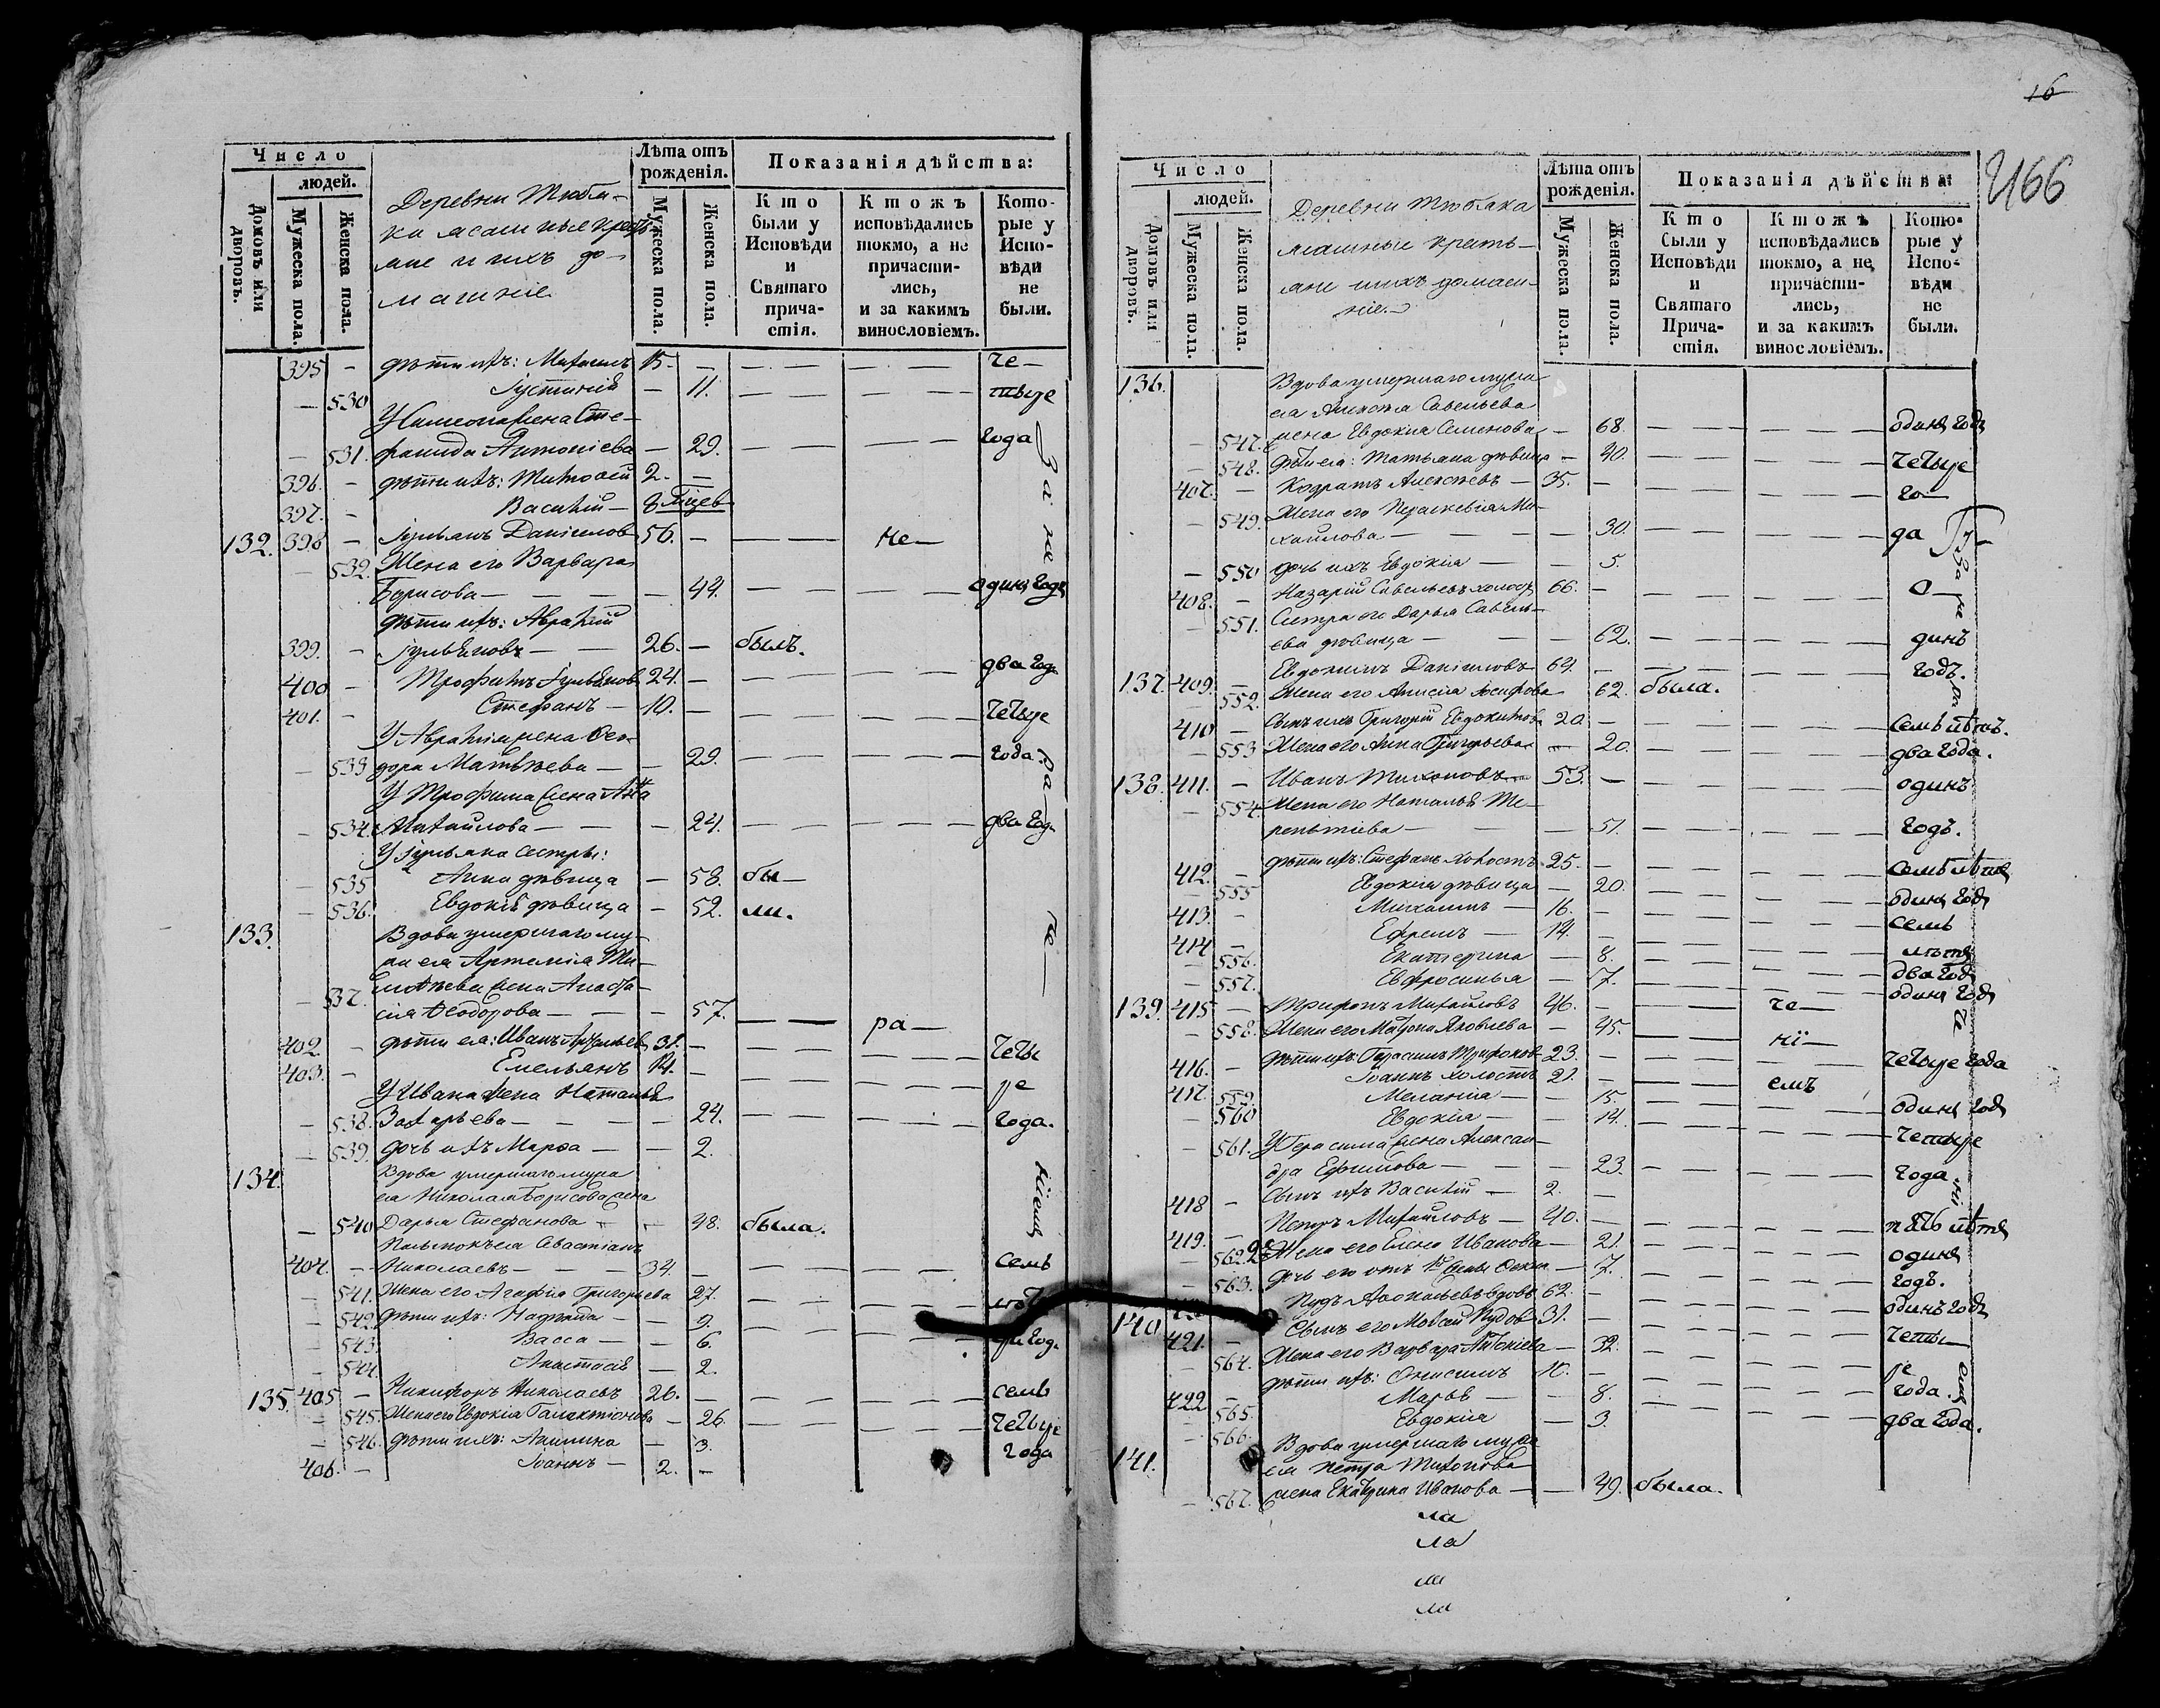 Число
людей.
Домовъ или дворовъ.
Мужеска пола.
Женска пола.
Деревни Тюбя-
ка ясашные кресть
яне и ихъ до-
машніе
Лѣта отъ рожденія.
Мужеска пола.
Женска пола.
Показанія дѣйства:
Кто были у Исповѣди и Святаго прича-стія.
Ктожъ исповѣдались токмо, а не причасти-лись, и за какимъ винословіемъ.
Кото-рые у Испо-вѣди не были.
395 - дѣти ихъ: Михаилъ 15. - че-
- 530 Іустинія - 11. тыре
У Симеона жена Сте-
- 531. фанида Антоніева - 29. года
396. - дѣти ихъ: 2. -
397. - Василій - 8
132. 398 - Іуліанъ Даніиловъ 56. - не-
- 532. Жена его Варвара
Борисова - 44. одинъ годъ
дѣти ихъ:
399. - Іуліановъ - 26. - былъ.
400 - Трофимъ Іуліановъ 24. - два года
401. - Стефанъ - 10. - четыре
жена Ѳео-
- 533 дора Матвѣева - 29. года
У Трофима жена
- 534. Михайлова - 24. два года
У Іуліана сестры:
- 535 Анна дѣвица - 58. бы-
- 536. Евдокія дѣвица - 52. ли.
133. Вдова умершаго му-
жа ея Артемія Ти-
- 537. жена Анаста-
сія Ѳеодорова - 57. ра-
402. - дѣти ея: Иванъ 31. - четы
403. - Емельянъ 14. -
У Ивана жена Наталья ре
- 538. Захарьева - 24. года.
- 539. дочь ихъ Марѳа - 2.
134. Вдова умершаго мужа
ея Николая Борисова жена
- 540 Дарья Стефанова - 48. была.
Севастіанъ
404. - Николаевъ - 34. - семь
- 541. Жена его Агафія Григорьева 27. лѣтъ
- 542. дѣти ихъ: Надежда - 9.
- 543. Васса - 6.
- 544. Анастасія - 2.
135. 405 - Никифоръ Николаевъ 26. - семь
- 545. Жена его Евдокія Галактіонова - 26. четыре
- 546. дѣти ихъ: Акилина - 3. года
406. - Іоаннъ - 2. -
За не
ра-
че-
ніемъ
16
466
Число
людей.
Домовъ или дворовъ.
Мужеска пола.
Женска пола.
Деревни Тюбяка
яшные кресть-
яне и ихъ домаш-
ніе.
Лѣта отъ рожденія.
Мужеска пола.
Женска пола.
Показанія дѣйства
Кто были у Исповѣди и Святаго Прича-стія.
Ктожъ исповѣдались токмо, а не причасти-лись, и за какимъ винословіемъ.
Кото-рые у Испо-вѣди не были.
136. Вдова умершаго мужа
ея Алексѣя Савельева
- 547. жена Евдокія Семенова - 68. одинъ годъ
- 548. дѣти ея: Татьяна дѣвица - 40. четыре
407. - Кодратъ Алексѣевъ - 35. - го-
- 549. Жена его Параскевія Ми-
хайлова - 30. да
- 550 дочь ихъ Евдокія - 5.
408. - Назарій Савельевъ холостъ 66. - о-
- 551. Сестра его Дарья Савель-
ева дѣвица - 62. динъ
137. 409. - Евдокимъ Даніиловъ 64. - годъ.
- 552. Жена его Анисія Іосифова 62. была.
410 - Сынъ ихъ Григорій Евдокимовъ 20 - семь лѣтъ.
- 553 Жена его Анна Григорьева - 20. два года.
138. 411. - Иванъ Тихоновъ - 53. - одинъ
- 554. Жена его Наталья Те-
рентіева - 51. годъ.
412. - дѣти ихъ: Стефанъ холостъ 25. - семь лѣтъ
- 555 Евдокія дѣвица - 20. одинъ годъ
413. - Михаилъ - 16. - семь
414 - Ефремъ - 14. - лѣтъ
- 556. Екатерина - 8. два года
- 557. Евфросинья - 7. одинъ годъ
139. 415 - Трифонъ Михайловъ 46. - че-
- 558. Жена его Матрона Яковлева - 45. ні-
416. - дѣти ихъ: Герасимъ Трифоновъ 23. - четыре года
417. - Іоаннъ холостъ 21. - емъ
- 559. Меланія - 15. одинъ годъ
- 560 Евдокія - 14. четыре
- 561. У Герасима жена Алексан-
дра Ефимова - 23. года
418 - Сынъ ихъ Василій - 2. -
419. - Петръ Михайловъ - 40. - пять лѣтъ
- 562. Жена его Елена Иванова - 21. одинъ
- 563. дочь его отъ 1й жены - 7. годъ.
140 Пудъ вдовъ 62. - одинъ годъ
421. - Сынъ его Моисей Пудовъ 31. - четы-
- 564. Жена его Варвара - 32. ре
422 - дѣти ихъ: Онисимъ 10. - года.
- 565. Марья - 8. два года.
- 566. Евдокія - 3.
141. Вдова умершаго мужа
ея Петра Тихонова
- 567. жена Екатерина Иванова - 49. была.